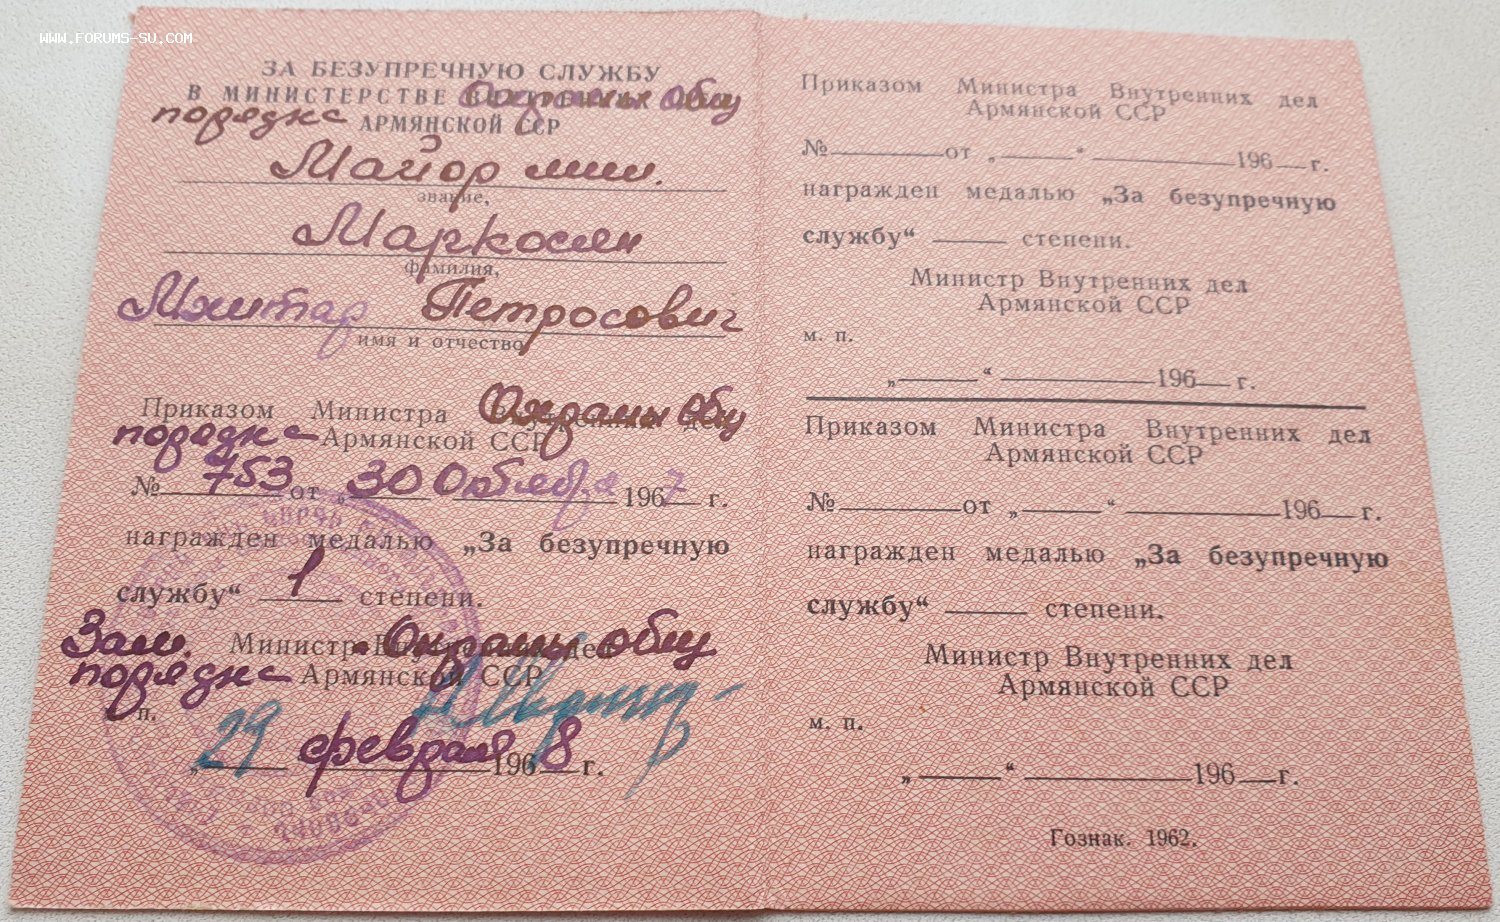 WWW.FORUMS-SU.COM
ЗА БЕЗУПРЕЧНУЮ СЛУЖБУ
В МИНИСТЕРСТВЕ Охраны общ
порядка АРМЯНСКОЙ ССР
Майор мил.
звание,
Маркосян
фамилия,
Мхитар Петросович
имя и отчество
Приказом Министра Охраны общ
порядка Армянской ССР
№ 753 от „30 Октября 1967 г.
награжден медалью „За безупречную
службу“ 1 степени.
Зам. Министр Охраны общ
порядка Армянской ССР
п.
„29 февраля 1968 г.
Приказом Министра Внутренних дел
Армянской ССР
№ от „ “ 196 г.
награжден медалью „За безупречную
службу“ степени.
Министр Внутренних дел
Армянской ССР
м. п.
„ “ 196 г.
Приказом Министра Внутренних дел
Армянской ССР
№ от „ “ 196 г.
награжден медалью „За безупречную
службу“ степени.
Министр Внутренних дел
Армянской ССР
м. п.
„ “ 196 г.
Гознак. 1962.